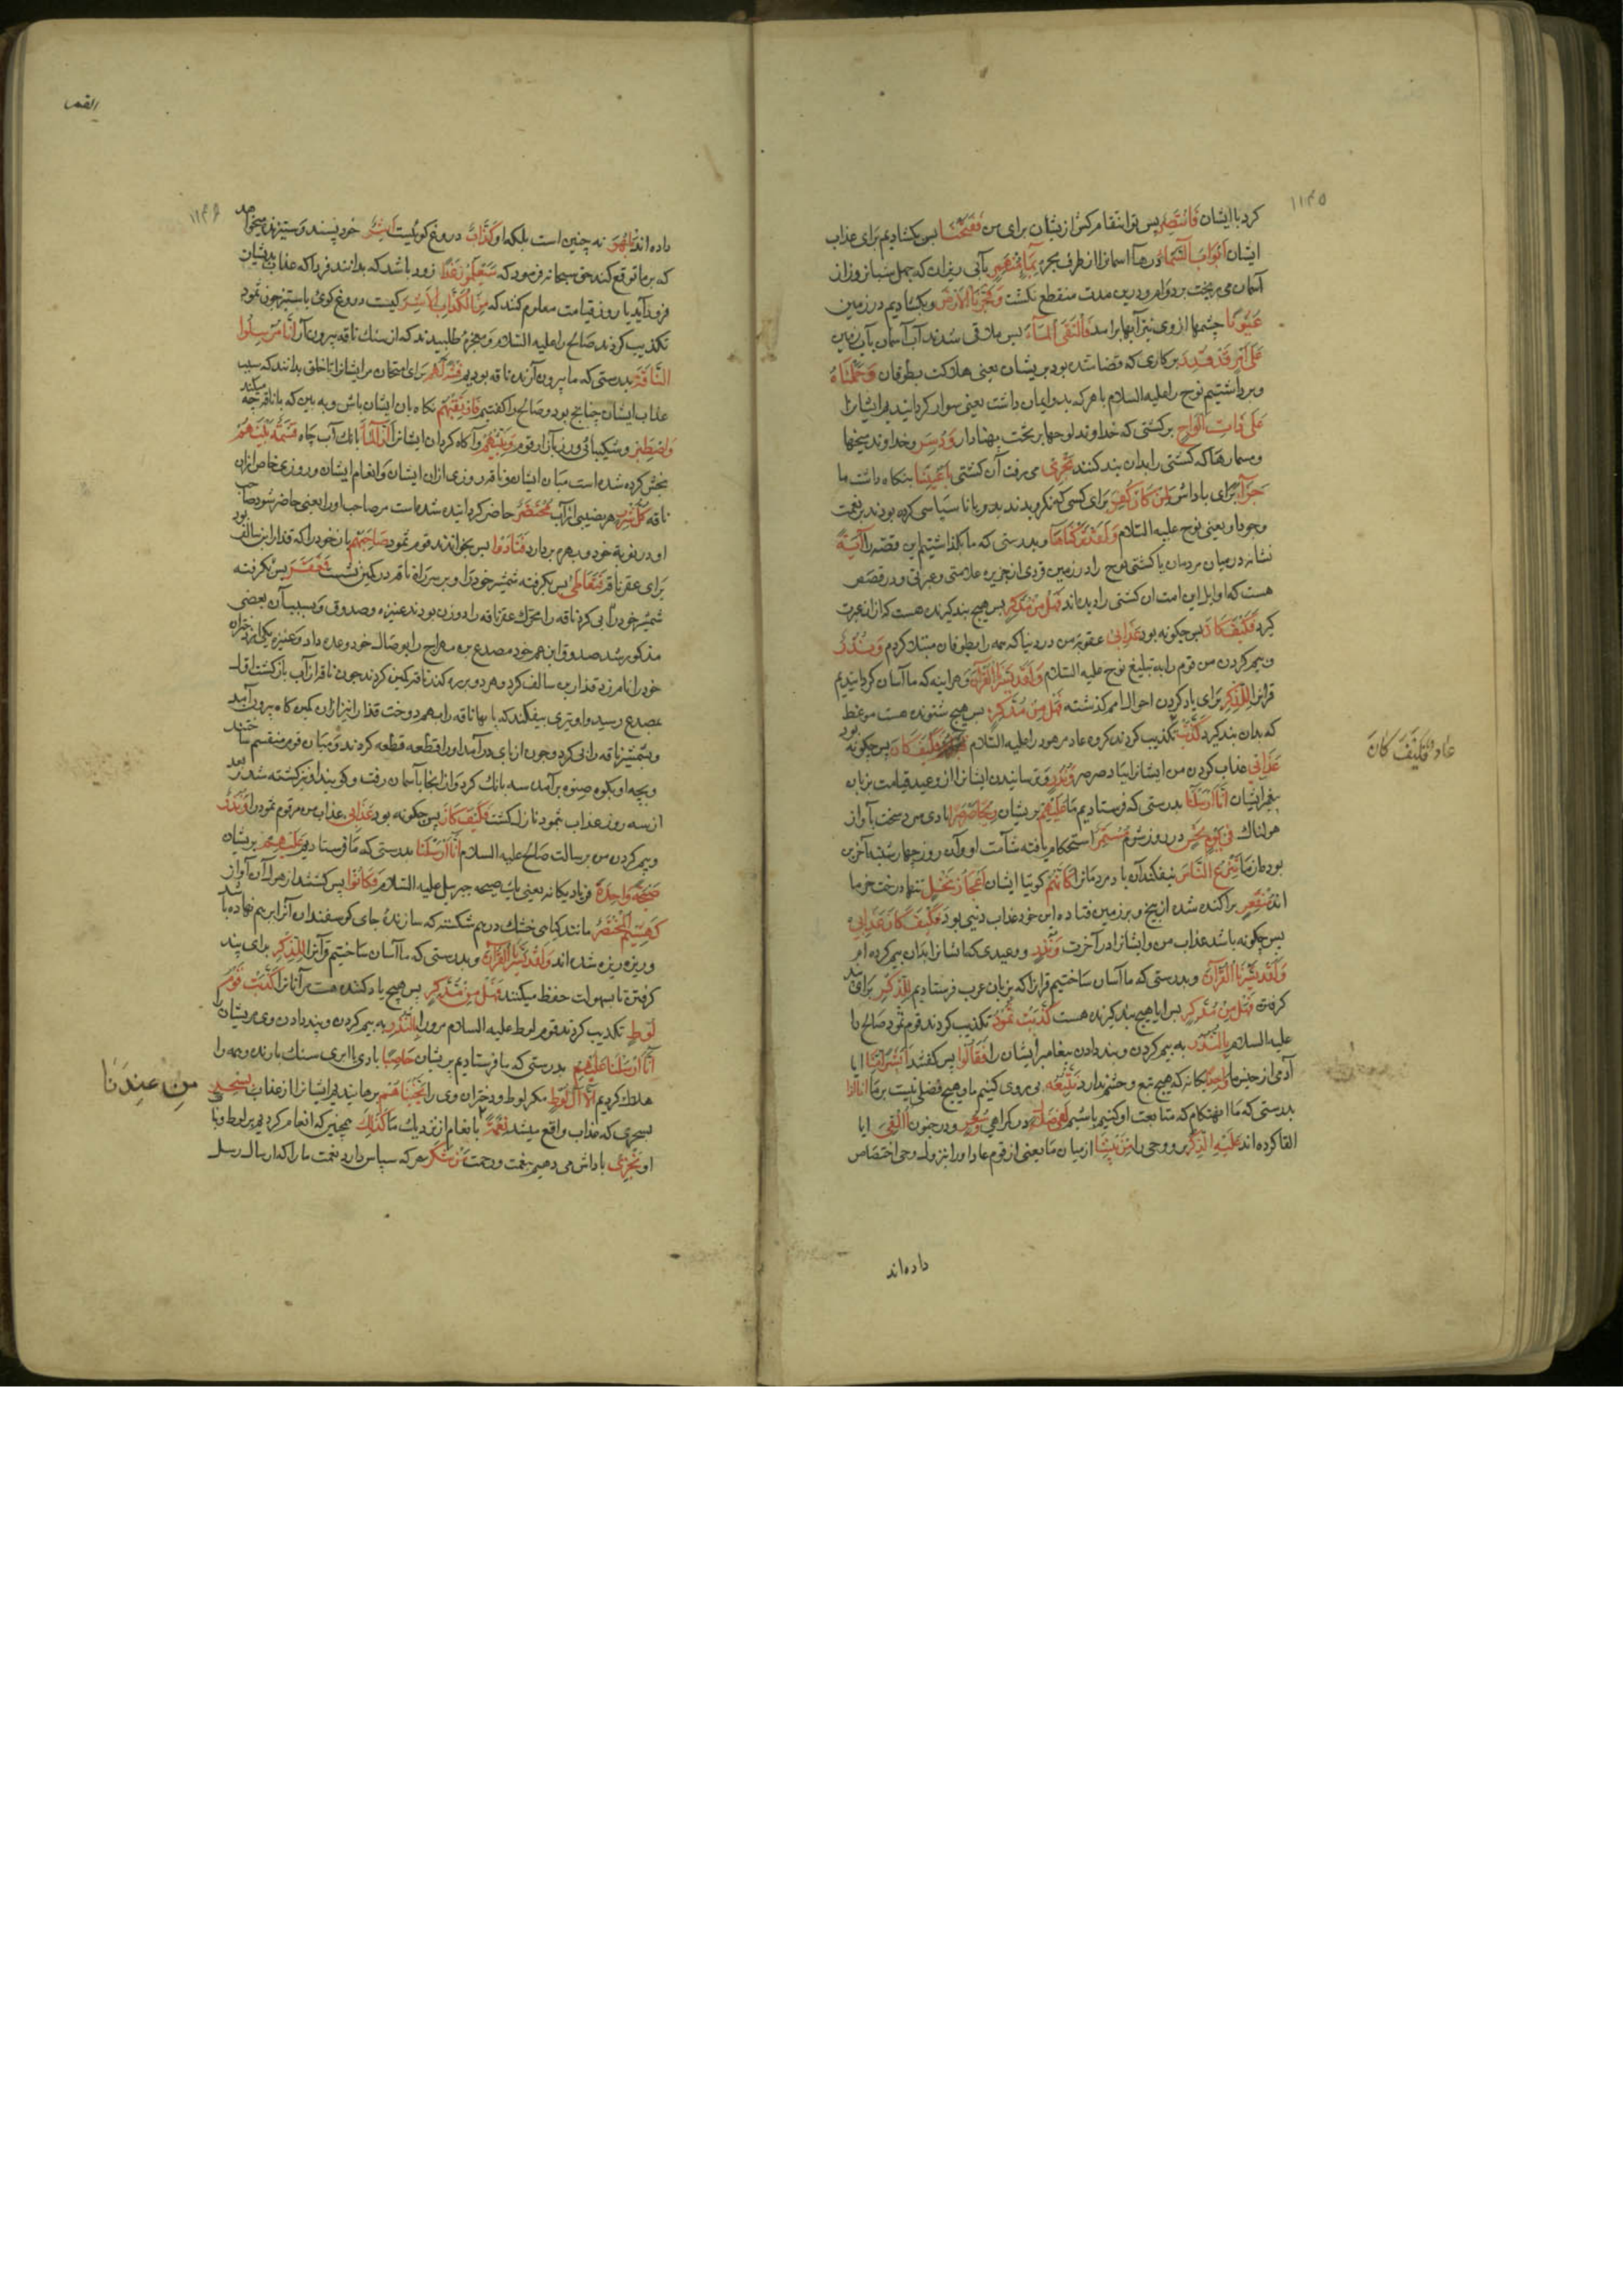 ۱۱۴۵
کرد با ایشان فَانْتَصِر پس تو انتقام کش از یشان برای من فَفَتَحْنَا پس بکشادیم برای عذاب
ایشان اَبْوَابَ السَّمَاءِ درهآ اسمانرا از طرف مجره بِمَاءٍ مُنْهَمِرٍ بآبی ریزان که چهل شبانروز از
آسمان می ریخت بر دوام و درین مدت منقطع نکشت وَفَجَّرْنَا الْاَرْضَ و بکشادیم در زمین
عُیُوْنًا چشمها از وی نیز آبها براسد فَالْتَقَی الْمَآءُ پس ملاقی شدند آب آسمان بآب زمین
عَلٰی اَمْرٍ قَدْ قُدِرَ بر کاری که قضا شده بود بر یشان یعنی هلاکت بطوفان وَحَمَلْنَاهُ
و برداشتیم نوح را علیه السلام با هر که بدو ایمان داشت یعنی سوار کردانیدیم ایشانرا
عَلٰی ذَاتِ اَلْوَاحٍ بر کشتی که خداوند لوحها بر تخت پهنا دار وَدُسُرٍ و خداوند میخها
و مسمارها که کشتی را بدان بند کنند تَجْرِیْ می رفت آن کشتی بِاَعْیُنِنَا بنکاه داشت ما
جَزَآءً برای پاداش لِمَنْ کَانَ کُفِرَ برای کسی که نکرویدند بدو یا ناسپاسی کرده بودند بر نعمت
وجود او یعنی نوح علیه السلام وَلَقَدْ تَرَکْنَاهَا و بدرستی که ما بکذاشتیم این قصه را اٰیَةً
نشانه در میان مردمان یا کشتی نوح را در زمین قردی از جزیره علامتی و عبرتی و در قصص
هست که اوایل این امت ان کشتی را دیده اند فَهَلْ مِنْ مُدَّکِرٍ پس هیچ پند کیرنده هست که از ان عبرت
کیرد فَکَیْفَ کَانَ پس چکونه بود عَذَابِیْ عقوبت من در دنیا که همه را بطوفان مبتلا کردم وَنُذُرِ
و بیم کردن من قوم را به تبلیغ نوح علیه السلام وَلَقَدْ یَسَّرْنَا الْقُرْاٰنَ و هراینه که ما آسان کردانیدیم
قرانرا لِلذِّکْرِ برای یاد کردن احوال امم کذشته فَهَلْ مِنْ مُدَّکِرٍ پس هیچ شنونده هست موعظ
که بدان پند کیرد کَذَّبَتْ تکذیب کردند کروه عاد مر هود را علیه السلام فَکَیْفَ کَانَ پس چکونه بود
عاد فَکَیْفَ کَانَ
عَذَابِیْ عذاب کردن من ایشانرا بباد صرصر وَنُذُرِ و ترسانیدن ایشانرا از وعید قیامت بزبان
پیغمبر ایشان اِنَّا اَرْسَلْنَا بدرستی که فرستادیم ما عَلَیْهِمْ بر یشان رِیْحًا صَرْصَرًا بادی سرد سخت با آواز
هولناک فِیْ یَوْمِ نَحْسٍ در روز شوم مُسْتَمِرٍّ استحکام یافته شآمت او وآن روز چهارشنبه آخرین
بود از ماه تَنْزِعُ النَّاسَ بیفکند آن باد مردمانرا کَاَنَّهُمْ کوئیا ایشان اَعْجَازُ نَخْلٍ تنهاء درخت خرما
اند مُنْقَعِرٍ براکنده شده از بیخ و بر زمین فتاده این خود عذاب دنیی بود فَکَیْفَ کَانَ عَذَابِیْ
پس چکونه باشد عذاب من و ایشانرا در آخرت وَنُذُرِ و وعیدی که ایشانرا بدان بیم کرده ام
وَلَقَدْ یَسَّرْنَا الْقُرْآنَ و بدرستی که ما آسان ساختیم قرانرا که بزبان عرب فرستادیم لِلذِّکْرِ برای پند
کرفتن فَهَلْ مِنْ مُدَّکِرٍ پس ایا هیچ پند کیرنده هست کَذَّبَتْ ثَمُوْدُ تکذیب کردند قوم ثمود صالح را
علیه السلام بِالنُّذُرِ به بیم کردن و پند دادن پیغامبر ایشان را فَقَالُوْا پس کفتند اَبَشَرًا مِنَّا ایا
آدمی از جنس ما وَاحِدًا یکانه که هیچ تبع و حشم ندارد نَتَّبِعُهُ پی روی کنیم ما و هیچ فضلی نیست بر ما اِنَّا اِذًا
بدرستی که ما انهنکام که متابعت او کنیم باشیم لَفِیْ ضَلَالٍ در کمراهی وَسُعُرٍ و در جنون أَاُلْقِیَ ایا
القا کرده اند عَلَیْهِ الذِّکْرُ بر و وحی را مِنْ بَیْنِنَا از میان ما یعنی از قوم عاد او را بنزول وحی اختصاص
داده اند
القمر
۱۱۴۶
داده اند بَلْ هُوَ نه چنین است بلکه او کَذَّابٌ دروغ کوئیست اَشِرٌ خود پسند و ستیزنده میخواهد
که بر ما توقع کند حق سبحانه فرمود که سَیَعْلَمُوْنَ غَدًا زود باشد که بدانند فردا که عذاب بدیشان
فرود آید یا روز قیامت معلوم کنند که مَنِ الْکَذَّابُ الْاَشِرُ کیست دروغ کوی با ستیز چون ثمود
تکذیب کردند صالح را علیه السلام و معجزه طلبیدند که از سنک ناقه بیرون آر اِنَّا مُرْسِلُوا
النَّاقَةِ بدرستی که ما بیرون آرنده ناقه بودیم فِتْنَةً لَهُمْ برای امتحان مر ایشانرا تا خلق بدانند که سبب
عذاب ایشان چنایج بود و صالح را کفتیم فَارْتَقِبْهُمْ نکاه بان ایشان باش و به بین که با ناقه چه میکنند
وَاصْطَبِرْ و شکیبائی ورز بآزار قوم وَنَبِّئْهُمْ و آکاه کردان ایشانرا اَنَّ الْمَآءَ بانک آب چاه قِسْمَةٌ بَیْنَهُمْ
بخش کرده شده است میان ایشان و ناقه روزی از ان ایشان و انعام ایشان و روزی خاص از ان
ناقه کُلُّ شِرْبٍ هر نصیبی از آب مُحْتَضَرٌ حاضر کردانیده شده است مر صاحب او را یعنی حاضر شود صاحب
او در نوبة خود و بهره بردارد فَنَادَوْا پس بخواندند قوم ثمود صَاحِبَهُمْ یار خود را که قدار ابن سالف بود
برای عقر ناقه فَتَعَاطٰی پس بکرفته شمشیر خود را و بر سر راه ناقه در کمین نشست فَعَقَرَ پس بکرفته
شمشیر خود را پی کرد ناقه را محرک عقر ناقه را دو زن بودند عنیزه و صدوق و سبب آن بعضی
مذکور شد صدوق ابن عم خود مصدع بن مهراج را بوصال خود وعده داد و عنیزه یکی از دختران
خود را نامزد قدار بن سالف کرد و هر دو بر ره کند ناقه کمین کردند چون ناقه از آب بازکشت اول
بمصدع رسید و او تیری بیفکند که پایهاء ناقه را بهم دوخت قدار نیز از ان کمین کاه بیرون آمد
و بشمشیر ناقه را پی کرد و چون از پای در آمد او را قطعه قطعه کردند و میان قوم منقسم ساختند
و بچه او بکوه صنوه برآمد سه بانک کرد و از انجا بآسمان رفت و کویند او نیز کشته شد و بعد
از سه روز عذاب ثمود نازل کشت فَکَیْفَ کَانَ پس چکونه بود عَذَابِیْ عذاب من مر قوم ثمود را وَنُذُرِ
و بیم کردن من برسالت صالح علیه السلام اِنَّا اَرْسَلْنَا بدرستی که ما فرستادیم عَلَیْهِمْ بر یشان
صَیْحَةً وَاحِدَةً فریاد یکانه یعنی یک صیحه جبرئیل علیه السلام فَکَانُوْا پس کشتند از هول آن آواز
کَهَشِیْمِ الْمُحْتَظِرِ مانند کیاهی خشک درهم شکسته که سازنده جای کوسفندان آنرا برهم نهاده باشد
و ریزه ریزه شده اند وَلَقَدْ یَسَّرْنَا الْقُرْاٰنَ و بدرستی که ما آسان ساختیم قرآنرا لِلذِّکْرِ برای پند
کرفتن تا بسهولت حفظ میکنند فَهَلْ مِنْ مُدَّکِرٍ پس هیچ یاد کننده هست مر آنانرا کَذَّبَتْ قَوْمُ
لُوْطٍ تکذیب کردند قوم لوط علیه السلام مرو را بِالنُّذُرِ به بیم کردن و پند دادن وی مر یشان را
اِنَّا اَرْسَلْنَا عَلَیْهِمْ بدرستی که ما فرستادیم بر یشان حَاصِبًا بادی یا ابری سنک بارنده و همه را
هلاک کردیم اِلَّا اٰلَ لُوْطٍ مکر لوط و دختران وی را نَجَّیْنَاهُمْ برهانیدیم ایشانرا از عذاب بِسَحَرٍ
مِنْ عِنْدِنَا
بسحری که عذاب واقع میشد نِعْمَةً بانعام از نزدیک ما کَذٰلِکَ همچنین که انعام کردیم بر لوط و بنات
او نَجْزِیْ پاداش می دهیم بنعمت و رحمت مَنْ شَکَرَ هر که سپاس دارد نعمت ما را که ارسال رسل